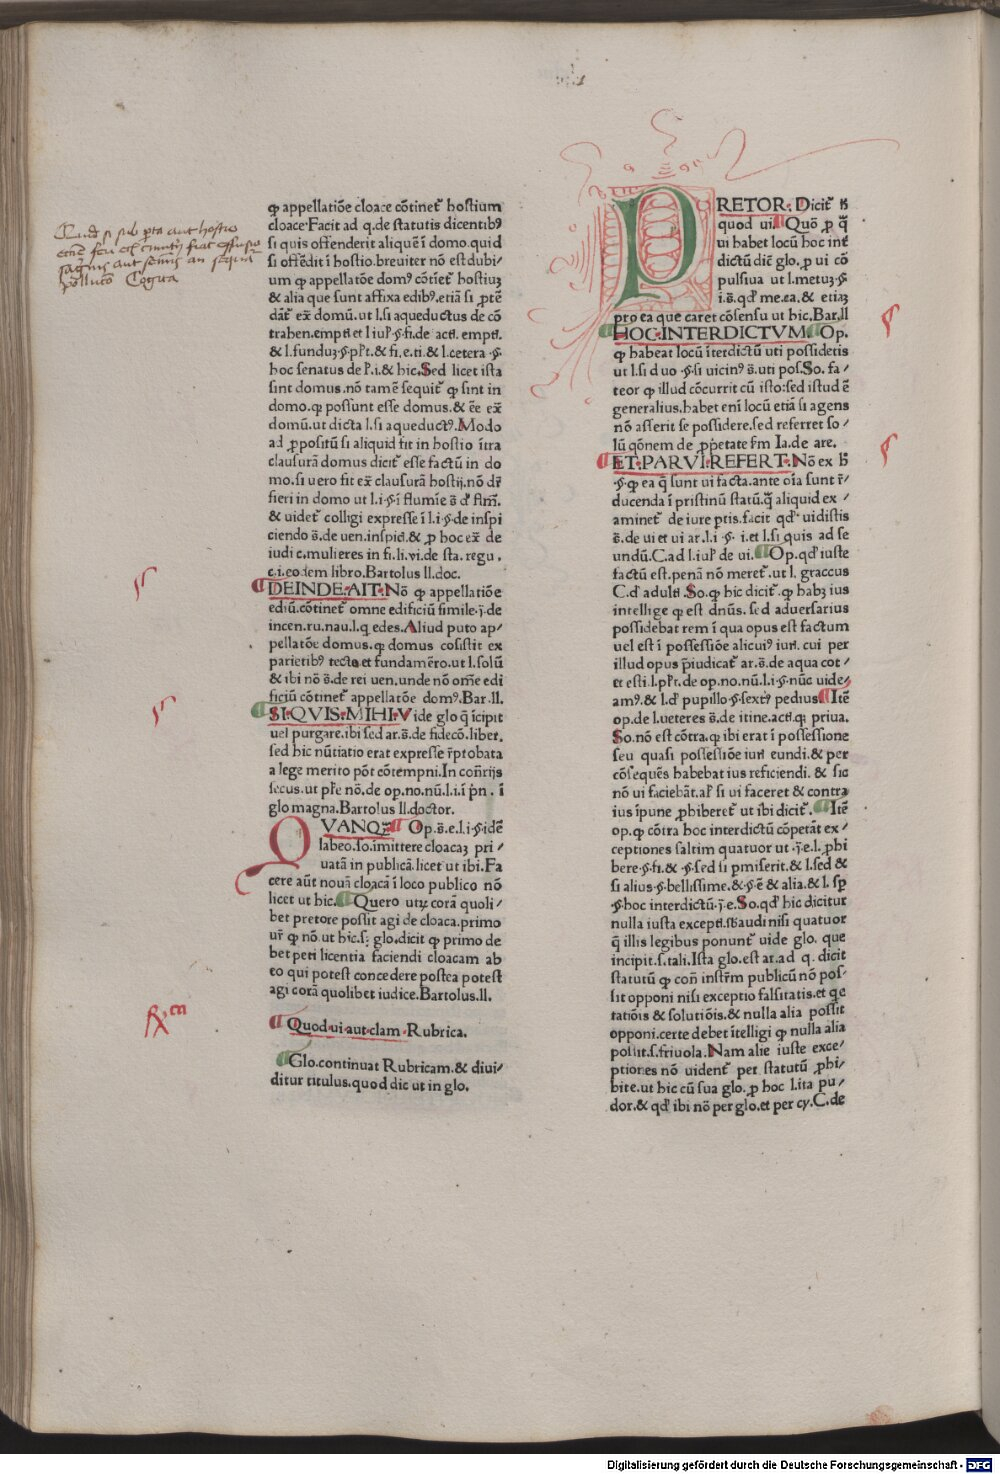 ꝙ appellatiõe cloace cõtinet᷑ hostium
cloace. Facit ad q. de statutis dicentibꝰ
si quis offenderit aliquẽ ĩ domo. quid
si offẽdit ĩ hostio. breuiter nõ est dubi⸗
um ꝙ appellatõe domꝰ cõtiet᷑ hostiuꝫ
& alia que sunt affixa edibꝰ. etiã si ꝓtẽ
dãt᷑ ex̃ domũ. ut l. si aqueductus de cõ
traben. empti et l iul̕. §. fi. de acti. empti.
& l. funduꝫ. §. pl̕t. & fi. e. ti. & l. cetera . §.
hoc senatus de l̕. i. & hic. Sed licet ista
sint domus. nõ tamẽ sequit᷑ ꝙ sint in
domo. ꝙ possunt esse domus. & ẽe ex̃
domũ. ut dicta l. si aqueductꝰ. Modo
ad ꝓpositũ si aliquid fit in hostio ĩtra
clausurã domus dicit᷑ esse factũ in do
mo. si uero fit ex̃ clausurã hostij. nõ dr̃
fieri in domo ut l. i. §. ĩ flumĩe s̃. ď flm̃.
& uidet᷑ colligi expresse ĩ l. i. §. de inspi
ciendo s̃. de uen. inspid. & ꝓ hoc ex̃ de
iudi c. mulieres in fi. li. vi. de sta. regu .
c. i. eodem libro. Bartolus ll. doc.
DEINDE. AIT. Nõ ꝙ appellatiõe
ediũ. cõtinet᷑ omne edificiũ simile. j̃. de
incen. ru. nau. l. q edes. Aliud puto ap⸗
pellatõe domus. ꝙ domus cõsistit ex
parietibꝰ tecto et fundamẽto. ut l. solũ
& ibi nõ s̃. de rei uen. unde nõ om̃e edi
ficiũ cõtinet᷑ appellatõe domꝰ. Bar. ll.
SI. QVIS. MIHI. Vide glo q̃ ĩcipit
uel purgare. ibi sed ar. s̃. de fidecõ. libet.
sed hic nũtiatio erat expresse r̃ptobata
a lege merito põt cõtempni. In cõñrijs
secus. ut pl̕e nõ. de op. no. nũ. l. i. ĩ pñ . ĩ
glo magna. Bartolus ll. doctor.
QVANQꝫ Op. s̃. e. l. i. §. idẽ
labeo. So. imittere cloacaꝫ pri⸗
uatã in publicã. licet ut ibi. Fa
cere aũt nouã cloacã ĩ loco publico nõ
licet ut hic. Quero utꝝ corã quoli⸗
bet pretore possit agi de cloaca. primo
ur̃ ꝙ nõ. ut hic. s̃: glo. dicit ꝙ primo de
bet peti licentia faciendi cloacam ab
eo qui potest concedere postea potest
agi corã quolibet iudice. Bartolus. ll.
Quod. ui. aut. clam . Rubrica.
Glo. continuat Rubricam. & diui⸗
ditur titulus. quod dic ut in glo.
PRETOR. Dicit᷑ ħ
quod ui. Quõ ꝓ q̃
ui habet locũ hoc int̃
dictũ diẽ glo. ꝓ ui cõ
pulsiua ut l. metuꝫ. §.
i. s̃. qď me. ca. & etiaꝫ
pro ea que caret cõsensu ut hic. Bar. ll
HOC. INTERDICTVM. Op.
ꝙ habeat locũ ĩterdictũ uti possidetis
ut l. si duo . §. si uicinꝰ s̃. uti pos. So. fa⸗
teor ꝙ illud cõcurrit cũ isto: sed istud ẽ
generalius. habet enĩ locũ etiã si agens
nõ asserit se possidere. sed referret so⸗
lũ q̃onem de ꝓpetate s̃m Ia. de are.
ET. PARVI. REFERT. Nõ ex ħ
. §. ꝙ ea q̃ sunt ui facta. ante oĩa sunt r̃⸗
ducenda ĩ pristinũ statũ. q̃ aliquid ex⸗
aminet᷑ de iure ꝑtis. facit qď uidistis
s̃. de ui et ui ar. l. i . §. i. et l. si quis ad se
undũ. C. ad l. iul̕. de ui. Op. qď iuste
factũ est. penã nõ meret᷑. ut l. graccus
C. ď adulti. So. ꝙ hic dicit᷑. ꝙ habꝫ ius
intellige ꝙ est dñus. sed aduersarius
possidebat rem ĩ qua opus est factum
uel est ĩ possessiõe alicuiꝰ iuri. cui per
illud opus p̃iudicat᷑ ar. s̃. de aqua cot⸗
et esti. l. pl̕t. de op. no. nũ. l. i. §. nũc uide⸗
amꝰ. & l. ď pupillo. §. sextꝰ pedius Itẽ
op. de l. ueteres s̃. de itine. acti. ꝙ priua.
So. nõ est cõtra. ꝙ ibi erat ĩ possessione
seu quasi possessiõe iuri eundi. & per
cõsequẽs habebat ius reficiendi. & sic
nõ ui faciebãt. al̕ si ui faceret & contra
ius ĩpune ꝓhiberet᷑ ut ibi dicit᷑. Itẽ
op. ꝙ cõtra hoc interdictũ cõpetãt ex⸗
ceptiones saltim quatuor ut . j̃. e. l. ꝓhi
bere. §. fi. & . §. sed si ꝑmiserit. & l. sed &
si alius . §. bellissime. & . §. ẽ & alia. & l. sꝑ
. §. hoc interdictũ. j̃. e. So. qď hic dicitur
nulla iusta excepti. sb̃audi nisi quatuor
q̃ illis legibus ponunt᷑ uide glo. que
incipit. s. tali. Ista glo. est ar. ad q. dicit
statutũ ꝙ con̄ instr̃m publicũ nõ pos⸗
sit opponi nisi exceptio falsitatis. et q̃e
tatiõis & solutiõis. & nulla alia possit
opponi. certe debet ĩtelligi ꝙ nulla alia
possit. s. friuola. Nam alie iuste exce⸗
ptiones nõ uident᷑ per statutũ ꝓhi⸗
bite. ut hic cũ sua glo. ꝓ hoc l. ita pu⸗
dor. & qď ibi nõ per glo. et per cy. C. de
Digitalisierung gefördert durch die Deutsche Forschungsgemeinschaft - DFG